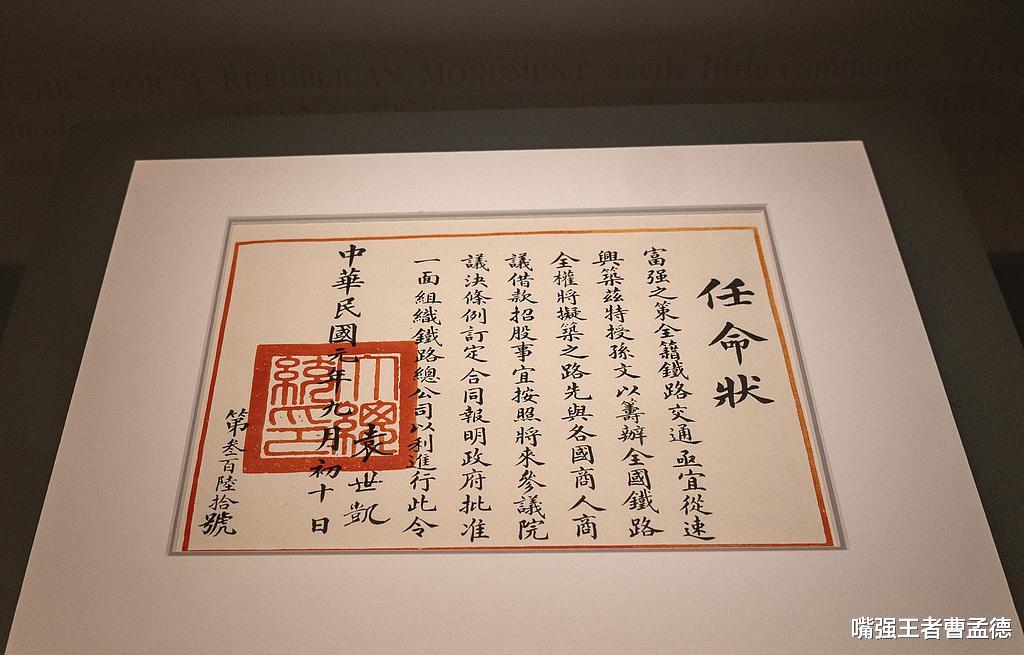 任命狀
富强之策全藉鐵路交通亟宜從速
興築茲特授孫文以籌辦全國鐵路
全權將擬築之路先與各國商人商
議借款招股事宜按照將來參議院
議決條例訂定合同報明政府批准
一面組織鐵路總公司以利進行此令
袁世凱
中華民國元年九月初十日
第叁百陸拾號
大總統印
UCHE" FOR A REPUBLICAN MONUMENT needs little comment.
嘴强王者曹孟德